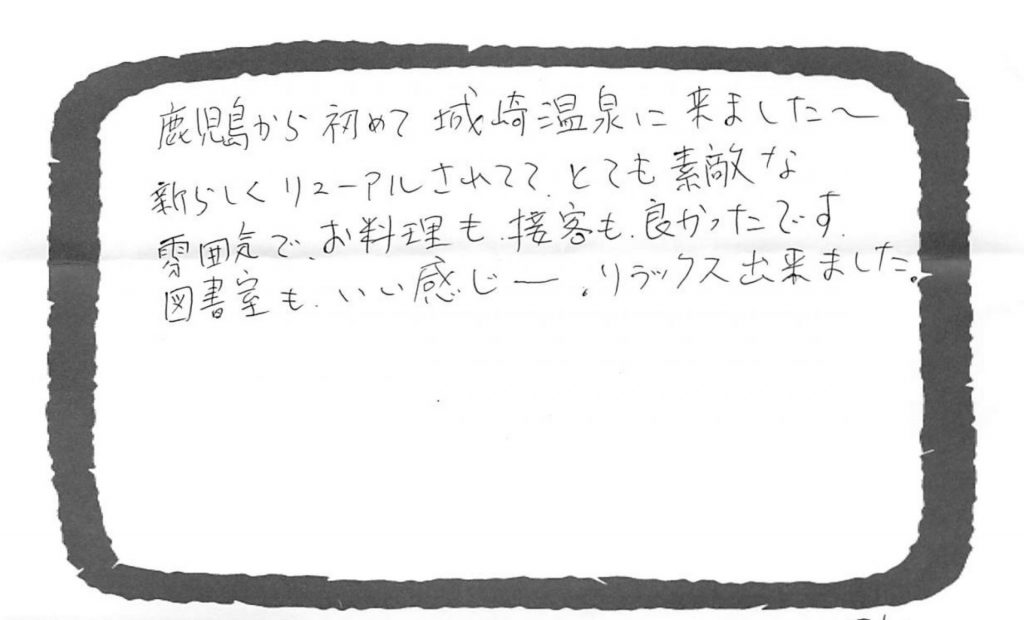 鹿児島から初めて城崎温泉に来ました〜
新らしくリューアルされてて、とても素敵な
雰囲気で、お料理も、接客も、良かったです、
図書室も、いい感じー、リラックス出来ました。